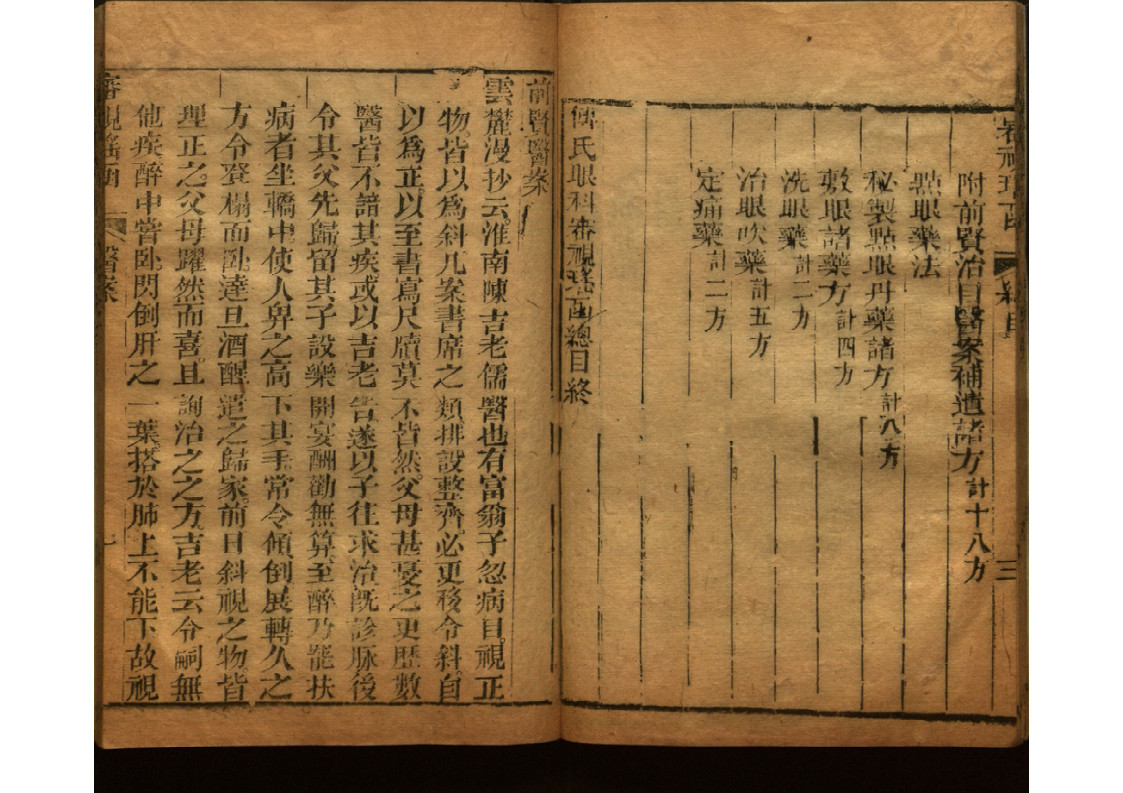 審視瑤函 總目 三
附前賢治目醫案補遺諸方計十八方
點眼藥法
秘製點眼丹藥諸方計八方
敷眼諸藥方計四方
洗眼藥計二方
治眼吹藥計五方
定痛藥計二方
傅氏眼科審視瑤函總目終
前賢醫案
雲麓漫抄云。淮南陳吉老儒醫也有富翁子忽病目。視正
物。皆以為斜几案書席之類。排設整齊。必更移令斜。自
以為正。以至書寫尺牘莫不皆然。父母甚憂之更歷數
醫皆不諳其疾。或以吉老告。遂以子往求治。旣診脉後
令其父先歸留其子設樂開宴酬勸無算。至醉乃罷扶
病者坐轎中。使人舁之高下其手。常令傾倒展轉久之
方令登榻而臥。達旦酒醒。遣之歸家。前日斜視之物。皆
理正之。父母躍然而喜。且詢治之之方。吉老云令嗣無
他疾。醉中嘗臥。閃倒肝之一葉。搭於肺上不能下故視
審視瑤函 醫案 七